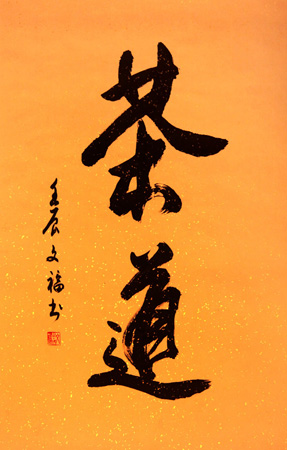 茶道
壬辰文福书